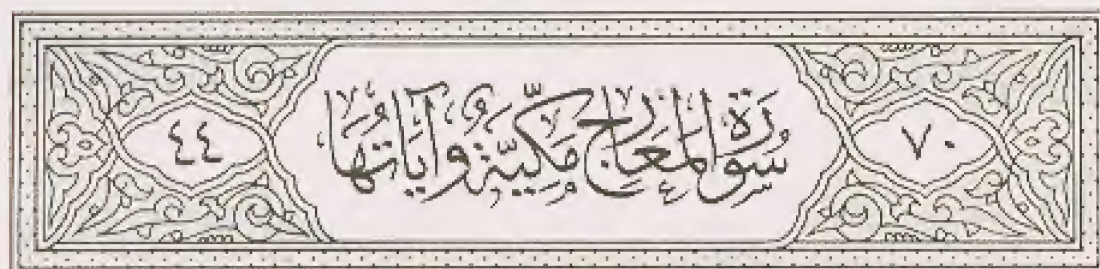 ٧٠ سُورَةُ المَعَارِجِ مَكِّيَّةٌ وَآيَاتُهَا ٤٤